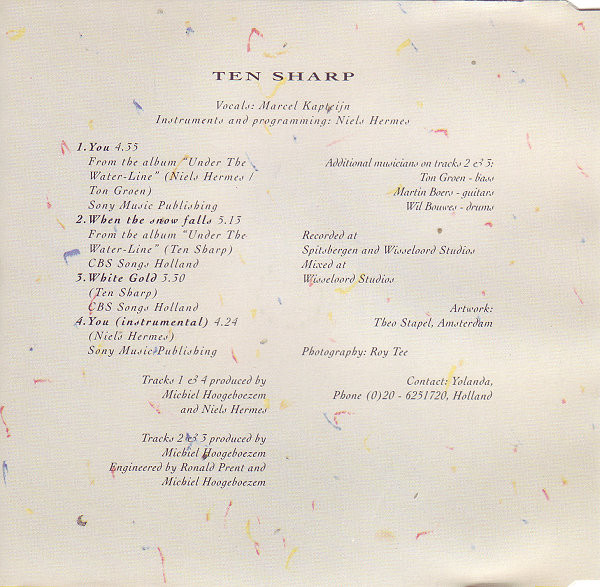 TEN SHARP
Vocals: Marcel Kapteijn
Instruments and programming: Niels Hermes
1. You 4.35
From the album "Under The
Water-Line" (Niels Hermes /
Ton Groen)
Sony Music Publishing
2. When the snow falls 5.13
From the album "Under The
Water-Line" (Ten Sharp)
CBS Songs Holland
3. White Gold 3.30
(Ten Sharp)
CBS Songs Holland
4. You (instrumental) 4.24
(Niels Hermes)
Sony Music Publishing
Tracks 1 & 4 produced by
Michiel Hoogeboezem
and Niels Hermes
Tracks 2 & 3 produced by
Michiel Hoogeboezem
Engineered by Ronald Prent and
Michiel Hoogeboezem
Additional musicians on tracks 2 & 3:
Ton Groen - bass
Martin Boers - guitars
Wil Bouwes - drums
Recorded at
Spitsbergen and Wisseloord Studios
Mixed at
Wisseloord Studios
Artwork:
Theo Stapel, Amsterdam
Photography: Roy Tee
Contact: Yolanda,
Phone (0)20 - 6251720, Holland